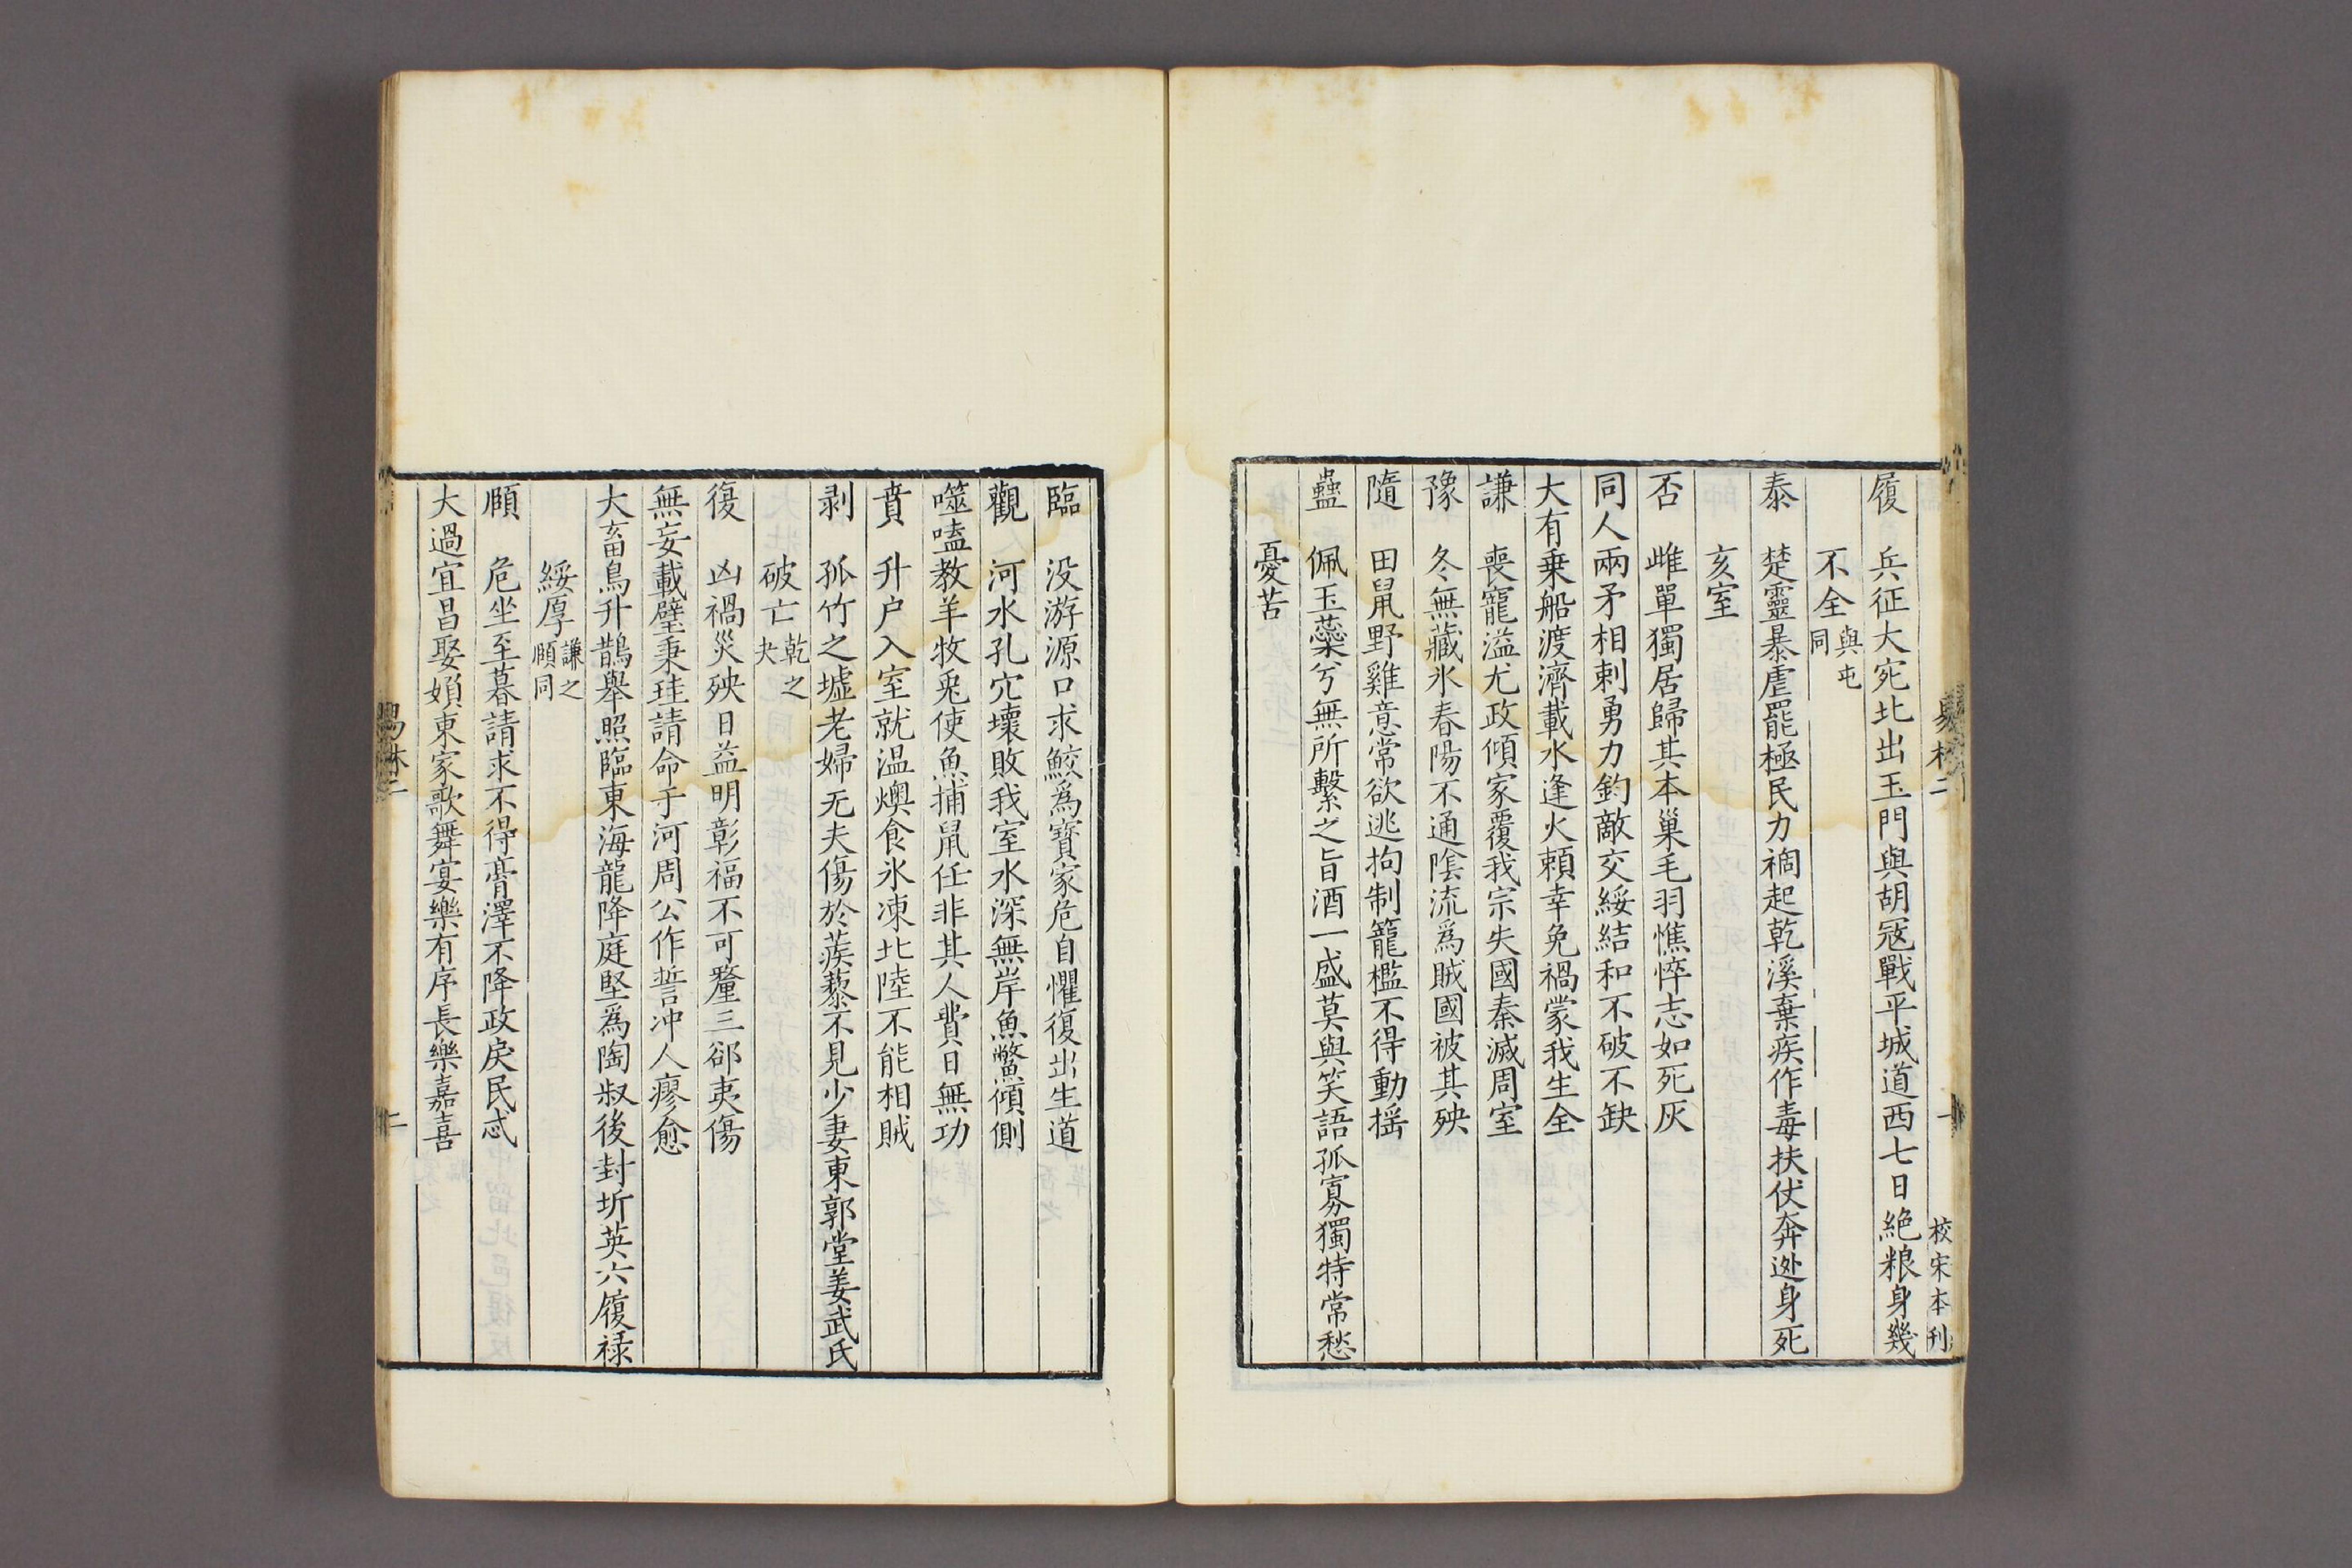 校宋本刋
履 兵征大宛北出玉門與胡冦戰平城道西七日絶粮身幾
不全與屯同
泰 楚靈暴虐罷極民力禍起乾溪棄疾作毒扶伏奔逊身死
亥室
否 雌單獨居歸其本巢毛羽憔悴志如死灰
同人兩矛相刺勇力鈞敵交綏結和不破不缺
大有乗船渡濟載水逢火頼幸免禍蒙我生全
謙 喪寵溢尤政傾家覆我宗失國秦滅周室
豫 冬無藏氷春陽不通隂流爲賊國被其殃
隨 田鼠野雞意常欲逃拘制籠檻不得動揺
蠱 佩玉蘂兮無所繫之旨酒一盛莫與笑語孤寡獨特常愁
憂苦
臨 没游源口求鮫爲寶家危自懼復出生道
觀 河水孔穴壞敗我室水深無岸魚鱉傾側
噬嗑教羊牧兎使魚捕鼠任非其人費日無功
賁 升户入室就温燠食氷凍北陸不能相賊
剥 孤竹之墟老婦无夫傷於蒺藜不見少妻東郭堂姜武氏
破亡乾之夬
復 凶禍災殃日益明彰福不可釐三郤夷傷
無妄載璧秉珪請命于河周公作誓冲人瘳愈
大畜鳥升鵲舉照臨東海龍降庭堅為陶叔後封圻英六履禄
綏厚謙之頤同
頤 危坐至暮請求不得膏澤不降政戾民忒
大過宜昌娶媍東家歌舞宴樂有序長樂嘉喜